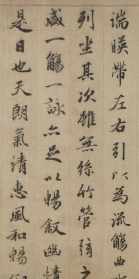 端暎帶左右引以為流觴曲
列坐其次雖無絲竹管弦之
盛一觴一詠亦足以暢敘幽情
是日也天朗氣清惠風和暢